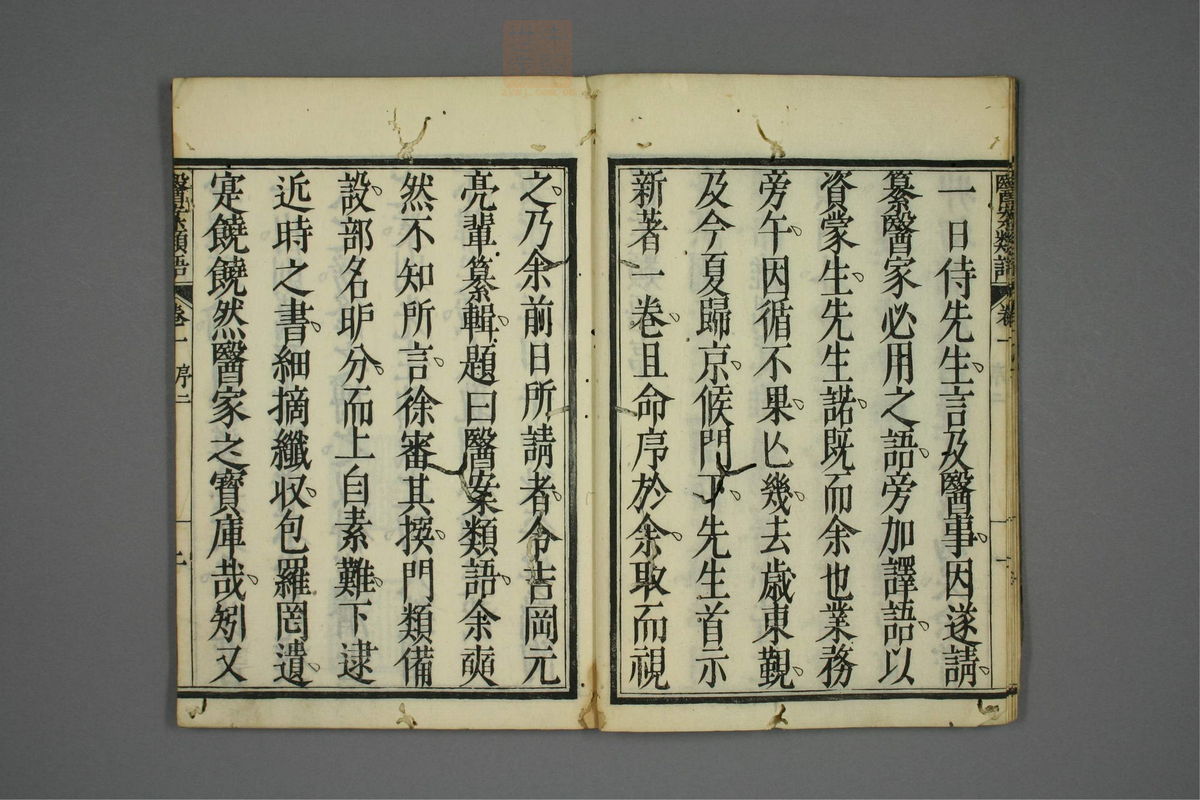 醫案類語 卷一 序二
一日侍先生言及醫事因遂請
纂醫家必用之語旁加譯語以
資蒙生先生諾既而余也業務
旁午因循不果亾幾去歳東覲
及今夏歸京候門下先生首示
新著一卷且命序於余取而視
之乃余前日所請者令吉岡元
亮輩纂輯題曰醫案類語余奭
然不知所言徐審其撰門類備
設部名昈分而上自素難下逮
近時之書細摘纖収包羅罔遺
寔饒饒然醫家之寶庫哉矧又
醫案類語 卷一 序二